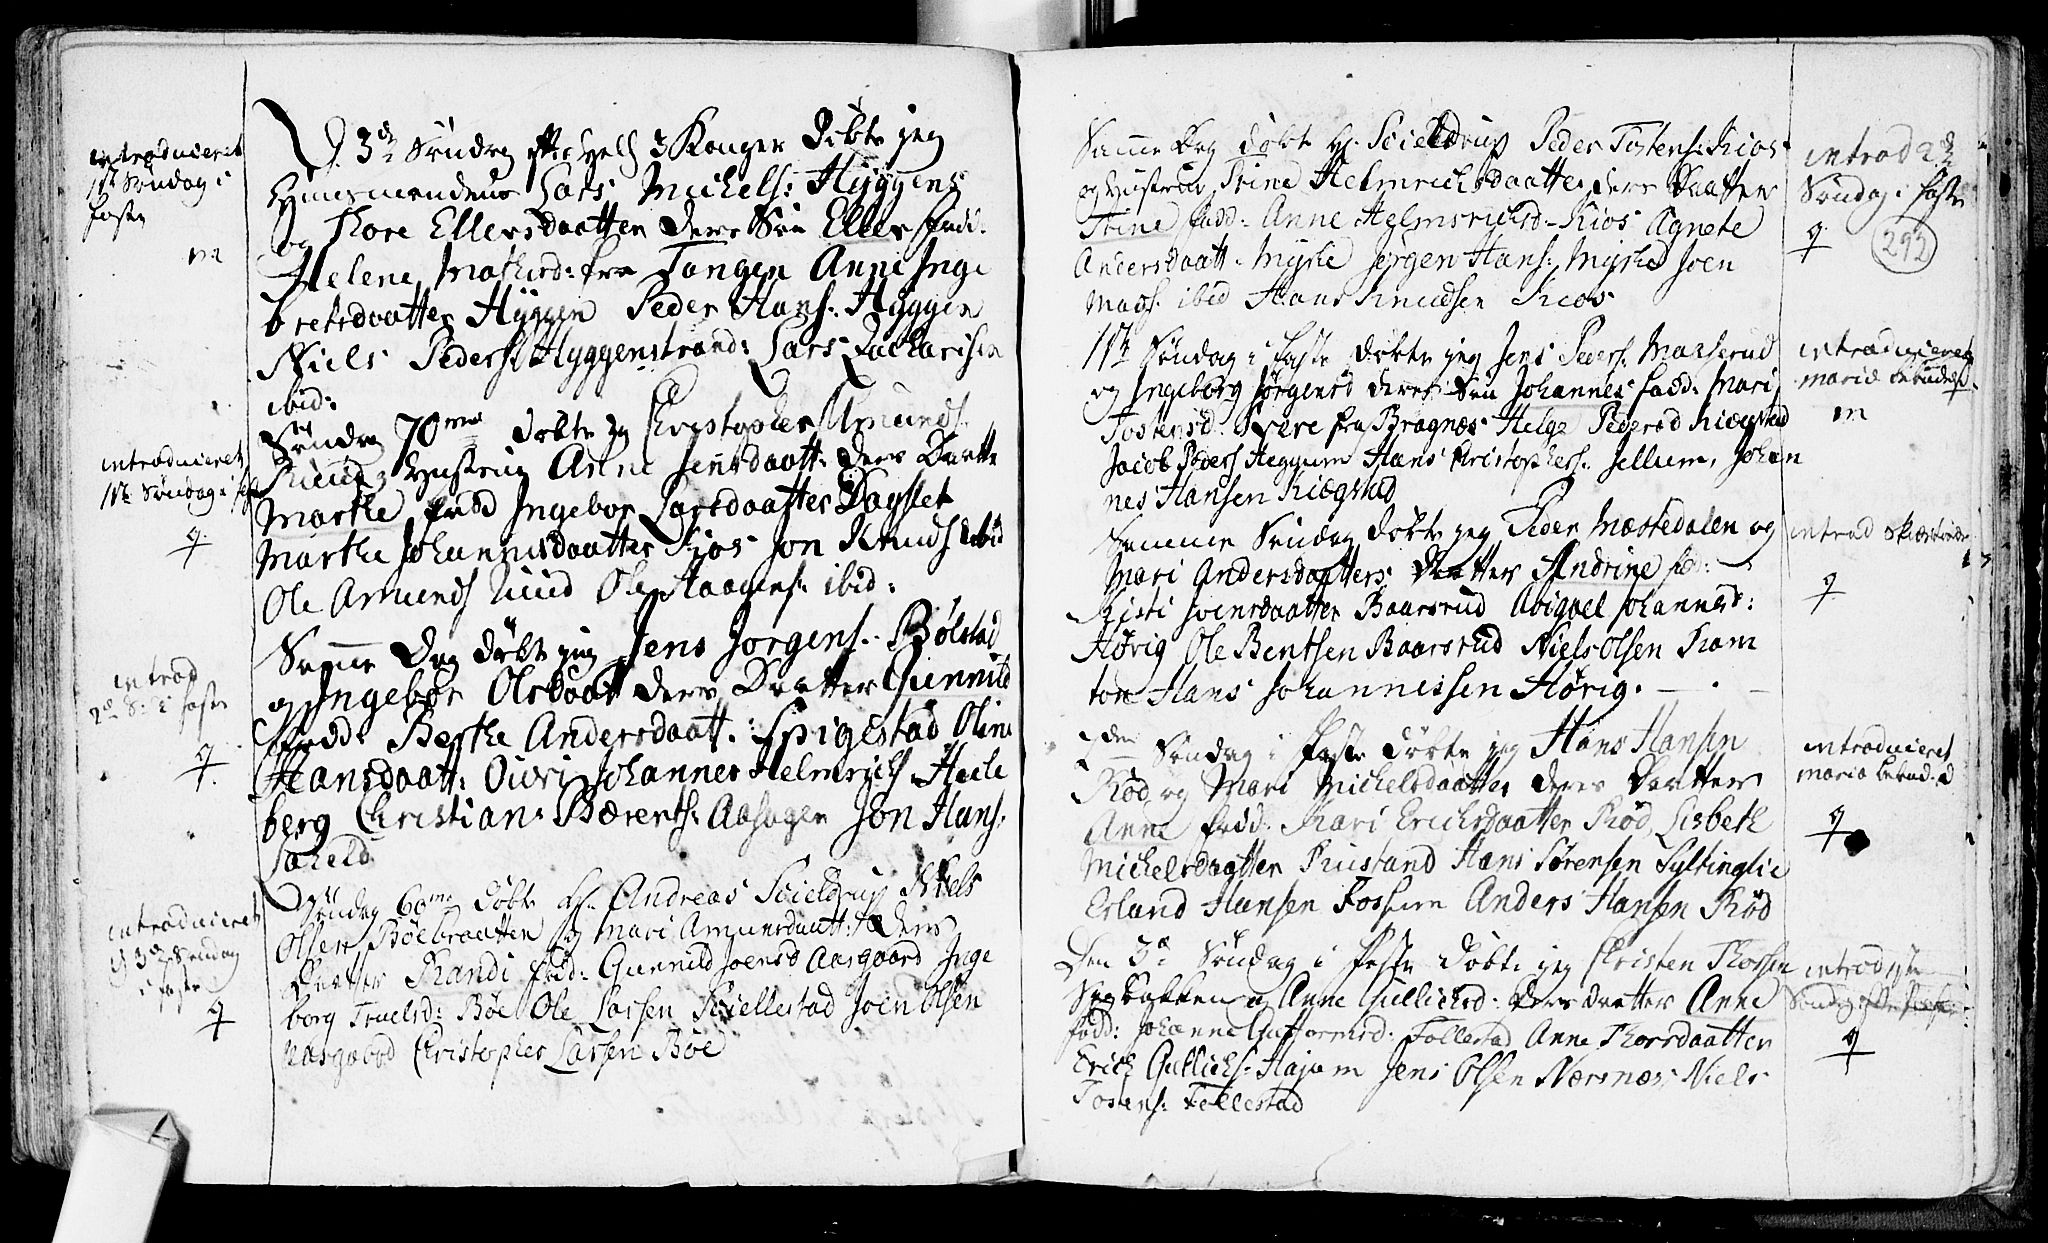 introduceret
1ste Søndag i
faste
m
D. 3de Søndag efter Hell 3 Konger Døbte jeg
Huusmandens Lars Michels: Hyggens
og Thore Ellersdaatter deres Søn Eller fadd:
Helene Mathisd: fra Tangen Anne Inge
bretsdaatter Hyggen Peder Hans: Hyggen
Niels Peders: Hyggenstrand: Lars Zacharisen
ibid:
introduceret
1ste Søndag i faste
q
Søndag 70ma døbte jeg Christopher Amunds:
Ruud og Hustrue Anne Jensdaatt: deres Daatter
Marthe fadd Ingebor Larsdaatter Dagslet
Marthe Johannisdaatter Kjos Jon Knuds ibid
Ole Amunds Ruud Ole Haagens: ibid:
introd
2den S: i faste
q
Samme Dag døbte jeg Jens Jorgens: Bølstad
og Ingebor Olsdaat deres Daatter Gunnild
fadd: Berthe Andersdaatt: Spigestad Oline
Hansdaatt: Oueri Johannes Helmrichs Heile
berg Christian Bærents: Aasagen Jon Hans:
Sæheld
introduceret
d 3de Søndag
i faste
q
Søndag 60ma døbte Hr. Andreas Scieldrup Niels
Olsen Böebraatten og Mari Amunsdaatt: deres
Daatter Randi fadd: Gunnild Joensd Aasgaard Inge
borg Truelsd: Böe Ole Larsen Sciellestad Joen Olsen
Næsgabod Christopher Larsen Böe
Samme Dag døbte Hr. Scieldrup Peder Tostens: Kios
og Hustrue Trine Helmrichsdaatter deres Daatter
Trine fadd: Anne Helmsrichsd-Kios Agnete
Andersdaatt- Myhre Jørgen Hans: Myhre Joen
Mads: ibid Hans Knudsen Kios
introd 2de
Søndag i faste
q
292
1ste Søndag i faste døbte jeg Jens Peders: Marserud
og Ingeborg Jørgensd deres Søn Johannes fadd: Mari
Tostensd: Svere fra Bragnæs Helge Pedersd Kiægstad
Jacob Peders Heggum Hans Christophers: Jellum, Johan
nes Hansen Kiægstad
introduceret
mariæ bebudelse
m
Samme Søndag døbte jeg Peder Mæstedalen og
Mari Andersdaatters Daatter Andrine fad:
Kisti Joensdaatter Baarsrud Abigael Johannisd:
Hørig Ole Bentsen Baarsrud Niels Olsen Ram
ton Hans Johannissen Hørig.
introd Skiærtorsd
q
2den Søndag i faste døbte jeg Hans Hansen
Rød og Mari Michelsdaatter deres Daatter
Anne fadd: Kari Erichsdaatter Rød Lisbeth
Michelsdaatter Ruistand Hans Sørensen Syltinglie
Erland Hansen Fossum Anders Hansen Rød
introduceret
maria bebud:d
q
Den 3de Søndag i faste døbte jeg Christen Thorsen
Spæbakken og Anne Gullichsd: deres daatter Anne
fadd: Johanne Guttormsd: Follestad Anne Thorsdaatter
Erich Gullichs: Hajum Jens Olsen Nærsnæs Niels
Tosens: Follestad
introd 1ste
Søndag efter Paaske
q